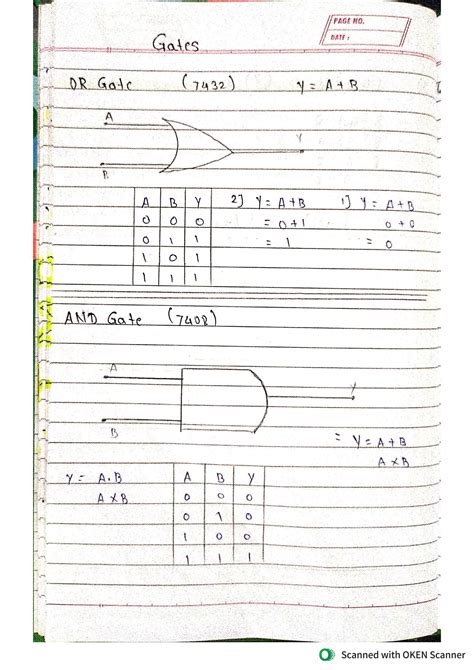 PAGE NO.
DATE :
Gates
OR Gate (7432) Y = A + B
A
Y
B
A B Y 2] Y = A + B 1] Y = A + B
0 0 0 = 0 + 1 0 + 0
0 1 1 = 1 = 0
1 0 1
1 1 1
AND Gate (7408)
A
Y
B
= Y = A + B
A × B
Y = A.B A B Y
A × B 0 0 0
0 1 0
1 0 0
1 1 1
Scanned with OKEN Scanner